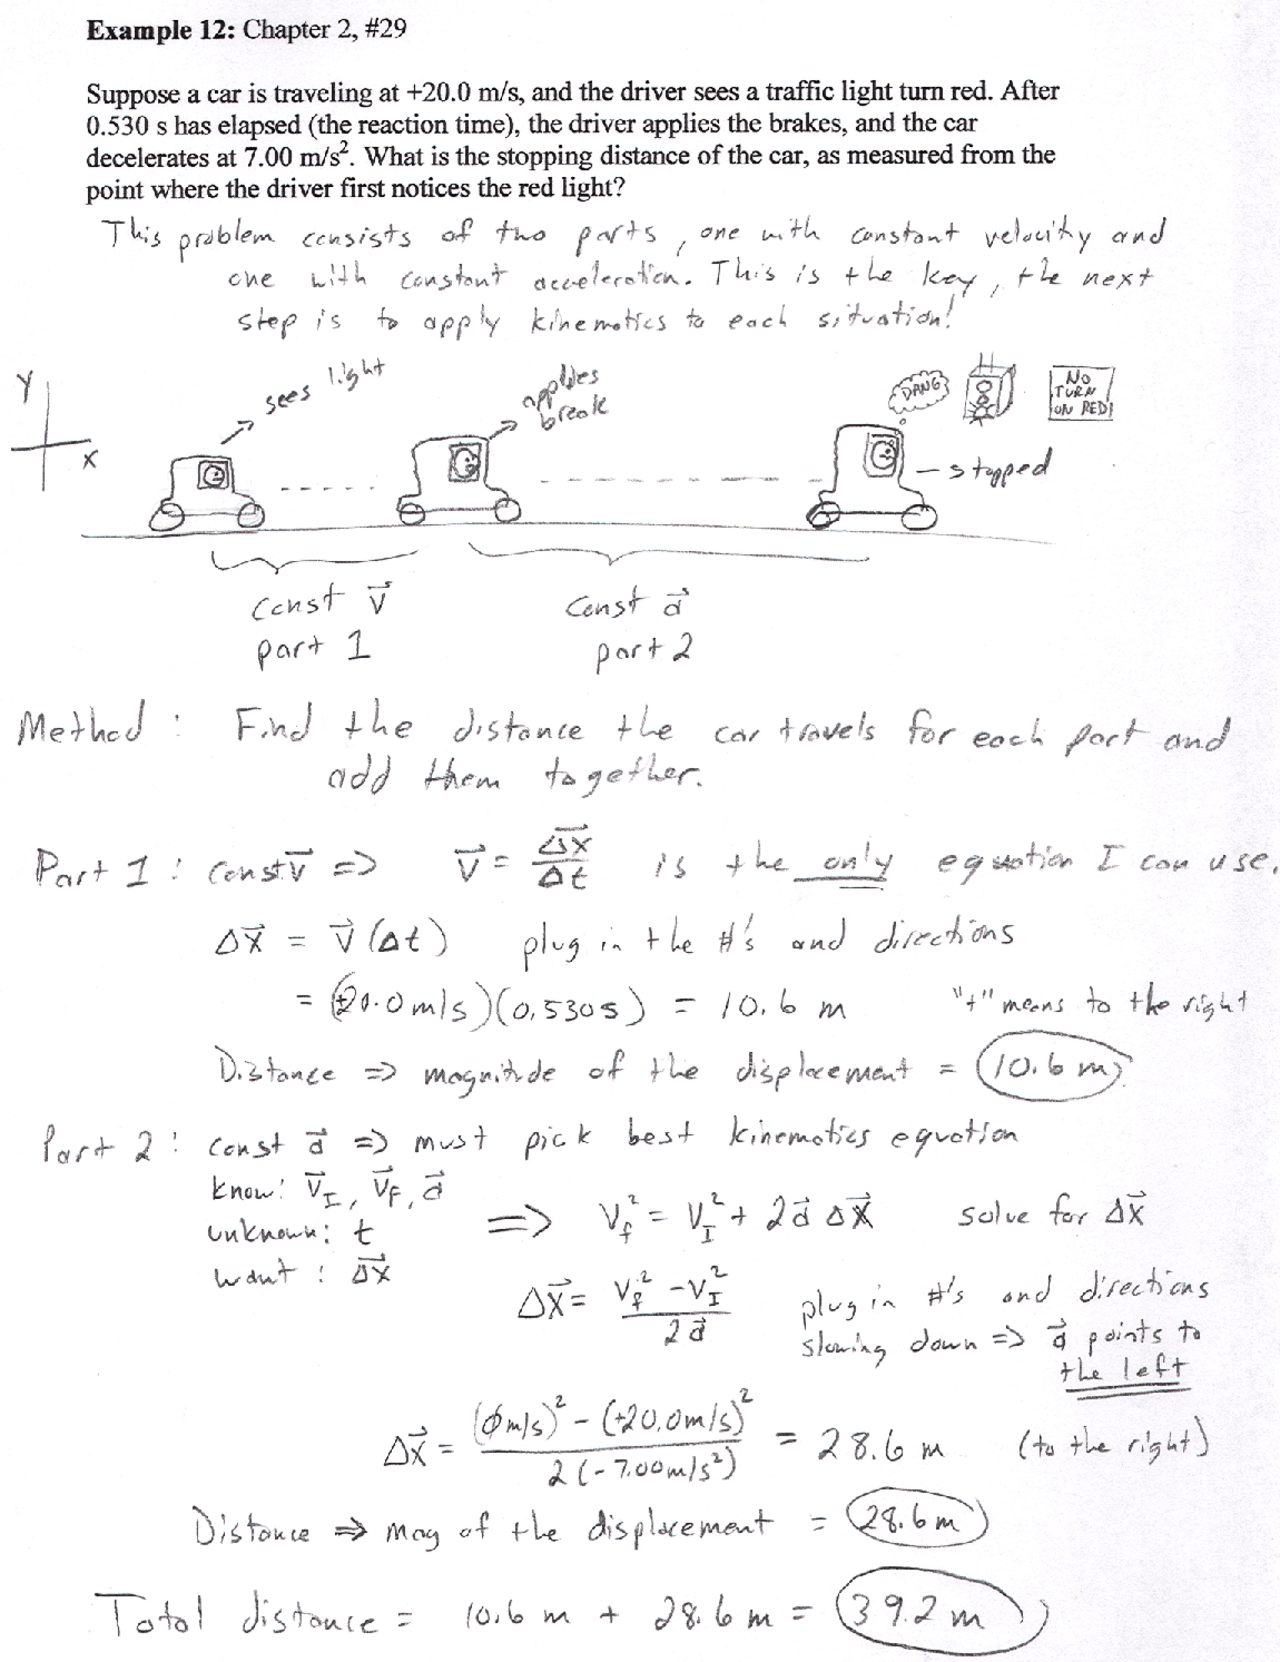 Example 12: Chapter 2, #29
Suppose a car is traveling at +20.0 m/s, and the driver sees a traffic light turn red. After
0.530 s has elapsed (the reaction time), the driver applies the brakes, and the car
decelerates at 7.00 m/s². What is the stopping distance of the car, as measured from the
point where the driver first notices the red light?
This problem consists of two parts, one with constant velocity and
one with constant acceleration. This is the key, the next
step is to apply kinematics to each situation!
Y
X
sees light
applies
break
DANG
NO
TURN
ON RED!
stopped
const v⃗
part 1
const a⃗
part 2
Method: Find the distance the car travels for each part and
add them together.
Part 1: const v⃗ => v⃗ = Δx⃗/Δt is the only equation I can use.
Δx⃗ = v⃗ (Δt) plug in the #'s and directions
= (+20.0 m/s)(0.530s) = 10.6 m "+" means to the right
Distance => magnitude of the displacement = 10.6 m
Part 2: const a⃗ => must pick best kinematics equation
know: v⃗_I, v⃗_F, a⃗
unknown: t
want: Δx⃗
=> V_f² = V_I² + 2a⃗ Δx⃗ solve for Δx⃗
Δx⃗ = (V_f² - V_I²)/2a⃗ plug in #'s and directions
slowing down => a⃗ points to
the left
Δx⃗ = ((0 m/s)² - (+20.0m/s)²)/(2(-7.00m/s²)) = 28.6 m (to the right)
Distance => mag of the displacement = 28.6 m
Total distance = 10.6 m + 28.6 m = 39.2 m